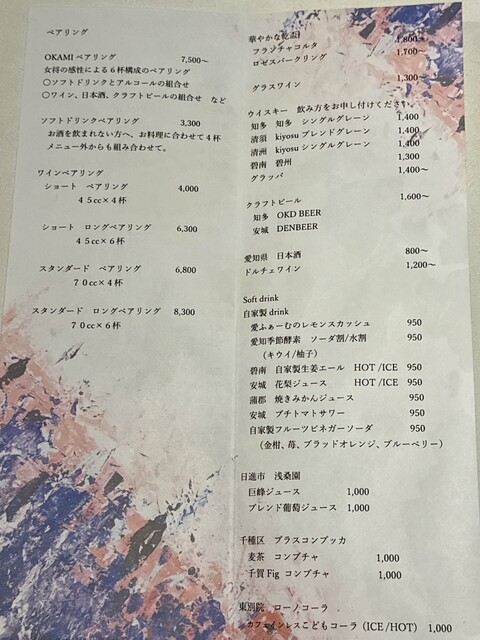 ペアリング
OKAMIペアリング 7,500〜
女将の感性による6杯構成のペアリング
○ソフトドリンクとアルコールの組合せ
○ワイン、日本酒、クラフトビールの組合せ など
ソフトドリンクペアリング 3,300
お酒を飲まれない方へ、お料理に合わせて4杯
メニュー外からも組み合わせて。
ワインペアリング
ショート ペアリング 4,000
45cc×4杯
ショート ロングペアリング 6,300
45cc×6杯
スタンダード ペアリング 6,800
70cc×4杯
スタンダード ロングペアリング 8,300
70cc×6杯
華やかな乾杯 1,800〜
フランチャコルタ 1,700〜
ロゼスパークリング
グラスワイン 1,300〜
ウイスキー 飲み方をお申し付けください。
知多 知多 シングルグレーン 1,400
清須 kiyosu ブレンドグレーン 1,400
清洲 kiyosu シングルグレーン 1,400
碧南 碧州 1,300
グラッパ 1,400〜
クラフトビール 1,600〜
知多 OKD BEER
安城 DENBEER
愛知県 日本酒 800〜
ドルチェワイン 1,200〜
Soft drink
自家製 drink
愛ふぁーむのレモンスカッシュ 950
愛知季節酵素 ソーダ割/水割 950
（キウイ/柚子）
碧南 自家製生姜エール HOT /ICE 950
安城 花梨ジュース HOT /ICE 950
蒲郡 焼きみかんジュース 950
安城 プチトマトサワー 950
自家製フルーツビネガーソーダ 950
（金柑、苺、ブラッドオレンジ、ブルーベリー）
日進市 浅桑園
巨峰ジュース 1,000
ブレンド葡萄ジュース 1,000
千種区 プラスコンブッカ
麦茶 コンブチャ 1,000
千賀 Fig コンブチャ 1,000
東別院 コーノコーラ
カフェインレスこどもコーラ（ICE /HOT） 1,000